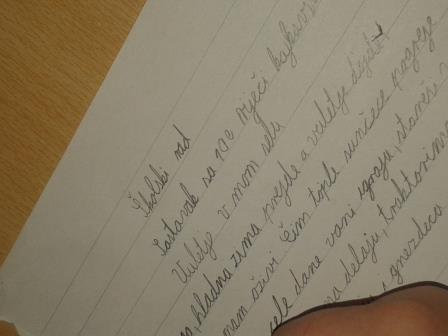 Školski rad
Sastavak sa 10 riječi kajkavski
Vuletje v mom selu
hladna zima prejde a vuletje dojde
mam oživi čim tople sunčece pogreje
cele dane vani igraju, stareši
delaju, traktorima
gnezdeca